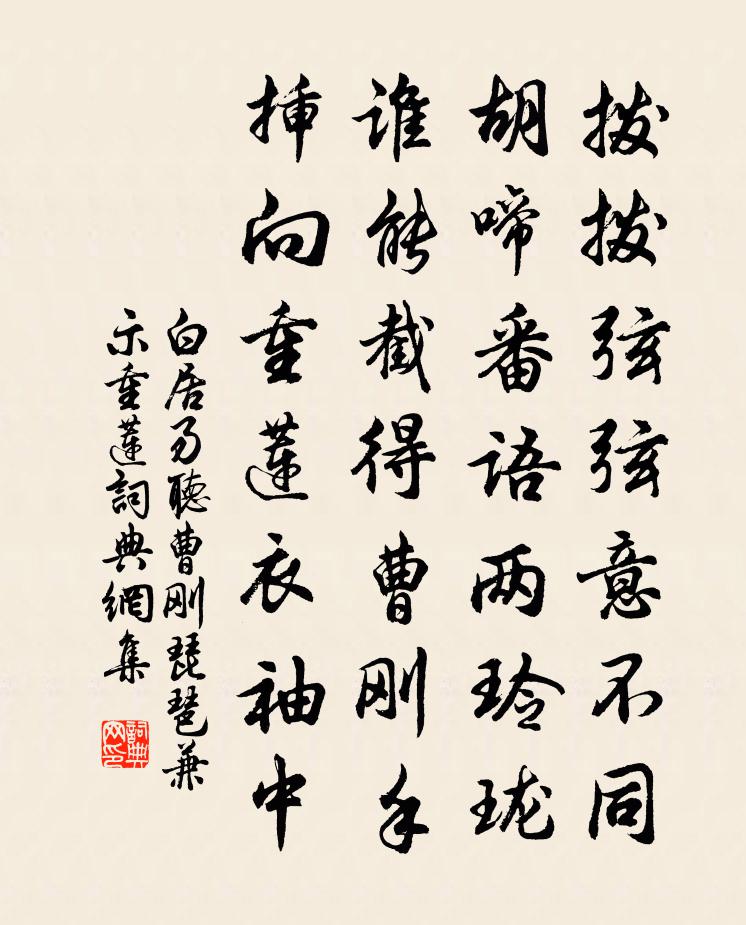 拨拨弦弦意不同
胡啼番语两玲珑
谁能截得曹刚手
插向重莲衣袖中
白居易聽曹刚琵琶兼
示重蓮詞典網集
詞典
网印